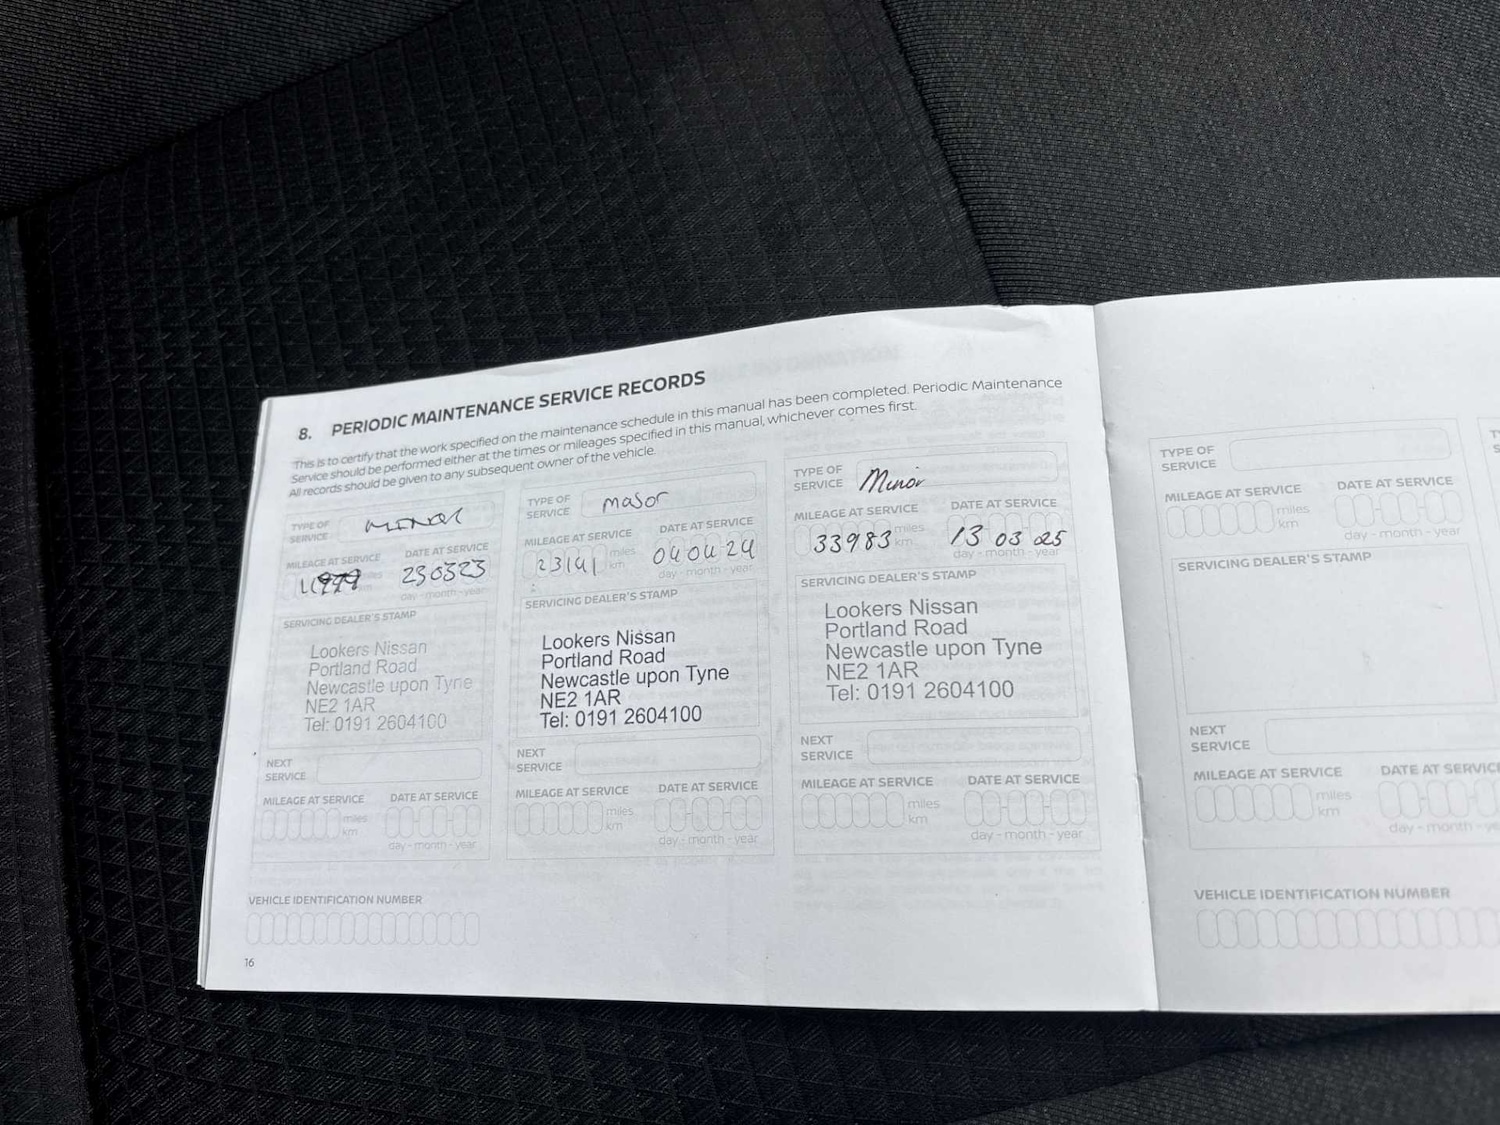 8. PERIODIC MAINTENANCE SERVICE RECORDS
This is to certify that the work specified on the maintenance schedule in this manual has been completed. Periodic Maintenance
Service should be performed either at the times or mileages specified in this manual, whichever comes first.
All records should be given to any subsequent owner of the vehicle.
TYPE OF
SERVICE
minor
MILEAGE AT SERVICE
miles
km
DATE AT SERVICE
230323
day - month - year
SERVICING DEALER'S STAMP
Lookers Nissan
Portland Road
Newcastle upon Tyne
NE2 1AR
Tel: 0191 2604100
NEXT
SERVICE
MILEAGE AT SERVICE
miles
km
DATE AT SERVICE
day - month - year
TYPE OF
SERVICE
maSor
MILEAGE AT SERVICE
23141
miles
km
DATE AT SERVICE
040424
day - month - year
SERVICING DEALER'S STAMP
Lookers Nissan
Portland Road
Newcastle upon Tyne
NE2 1AR
Tel: 0191 2604100
NEXT
SERVICE
MILEAGE AT SERVICE
miles
km
DATE AT SERVICE
day - month - year
TYPE OF
SERVICE
Minor
MILEAGE AT SERVICE
33983
miles
km
DATE AT SERVICE
13 03 25
day - month - year
SERVICING DEALER'S STAMP
Lookers Nissan
Portland Road
Newcastle upon Tyne
NE2 1AR
Tel: 0191 2604100
NEXT
SERVICE
MILEAGE AT SERVICE
miles
km
DATE AT SERVICE
day - month - year
VEHICLE IDENTIFICATION NUMBER
16
TYPE OF
SERVICE
MILEAGE AT SERVICE
miles
km
DATE AT SERVICE
day - month - year
SERVICING DEALER'S STAMP
NEXT
SERVICE
MILEAGE AT SERVICE
miles
km
DATE AT SERVICE
day - month - ye
VEHICLE IDENTIFICATION NUMBER